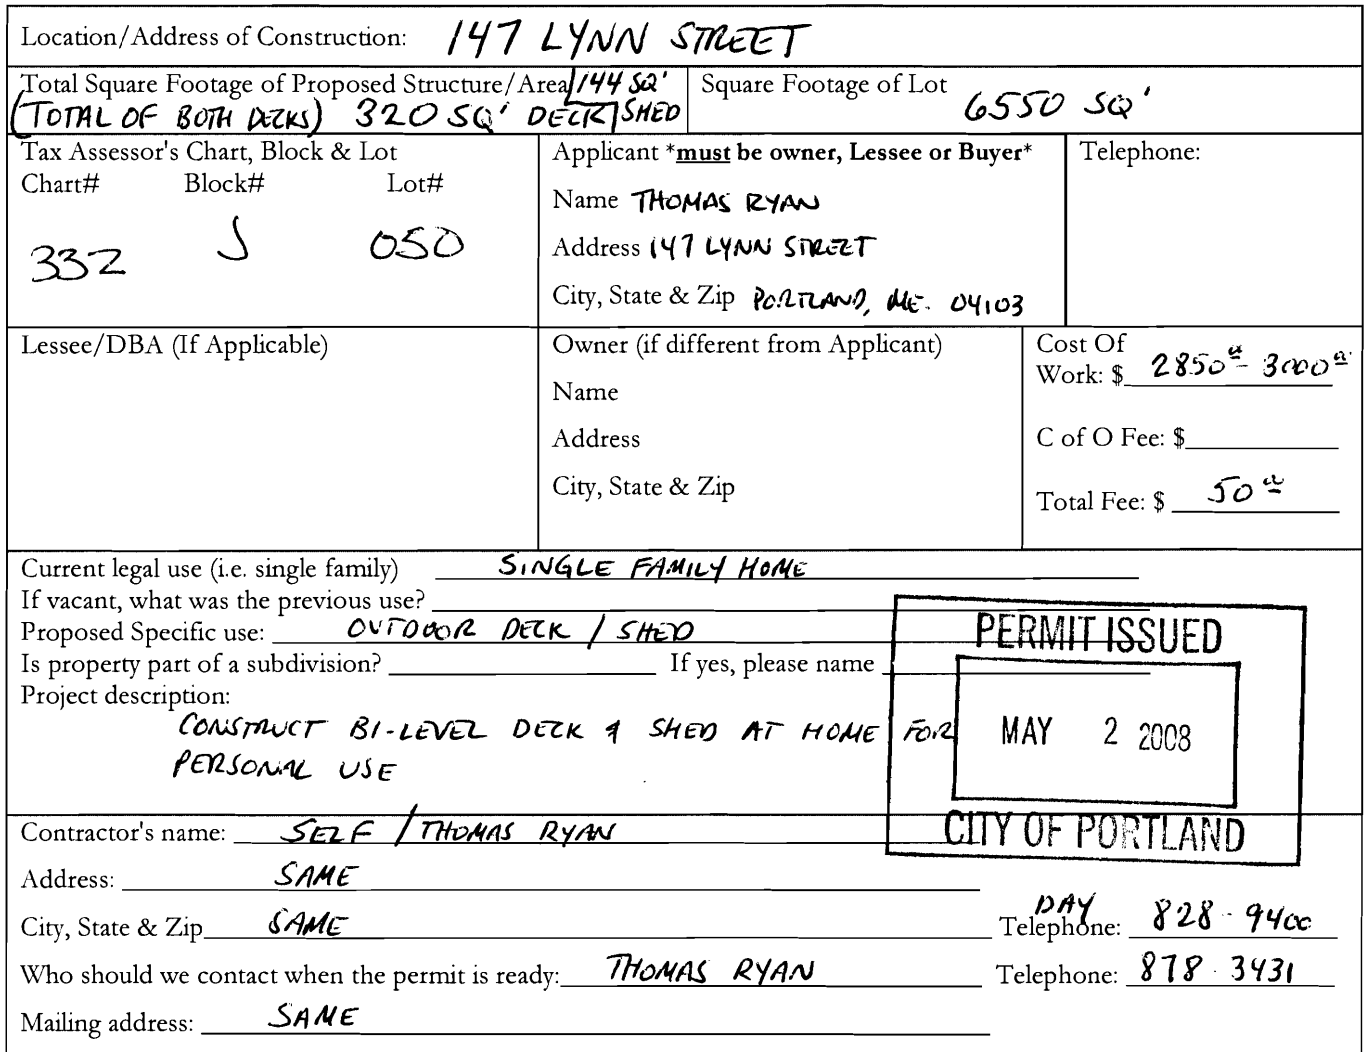 Location/Address of Construction: 147 LYNN STREET
Total Square Footage of Proposed Structure/Area 144 SQ'
(TOTAL OF BOTH DECKS) 320 SQ' DECK SHED
Square Footage of Lot
6550 SQ'
Tax Assessor's Chart, Block & Lot
Chart# Block# Lot#
332 J 050
Applicant *must be owner, Lessee or Buyer*
Name THOMAS RYAN
Address 147 LYNN STREET
City, State & Zip PORTLAND, ME. 04103
Telephone:
Lessee/DBA (If Applicable)
Owner (if different from Applicant)
Name
Address
City, State & Zip
Cost Of
Work: $ 2850 - 3000
C of O Fee: $
Total Fee: $ 50
Current legal use (i.e. single family) SINGLE FAMILY HOME
If vacant, what was the previous use?
Proposed Specific use: OUTDOOR DECK / SHED
Is property part of a subdivision? If yes, please name
Project description:
CONSTRUCT BI-LEVEL DECK & SHED AT HOME FOR
PERSONAL USE
PERMIT ISSUED
MAY 2 2008
CITY OF PORTLAND
Contractor's name: SELF / THOMAS RYAN
Address: SAME
City, State & Zip SAME
DAY
Telephone: 828-9400
Who should we contact when the permit is ready: THOMAS RYAN Telephone: 878-3431
Mailing address: SAME